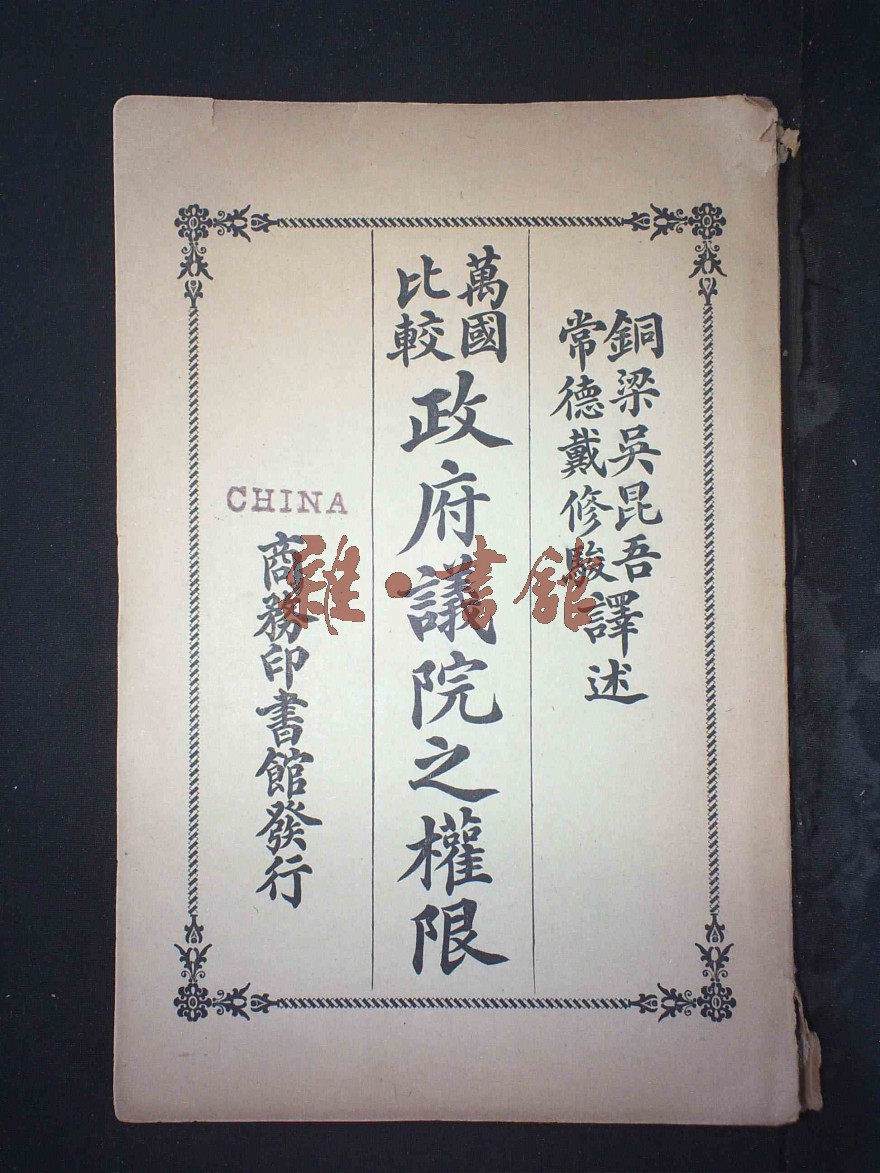 銅梁吳昆吾
常德戴修駿
譯述
萬國
比較
政府議院之權限
商務印書館發行
CHINA
雜·書館